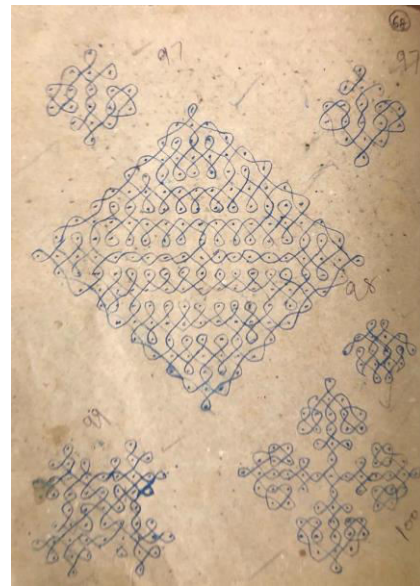 68
97
97
98
99
100